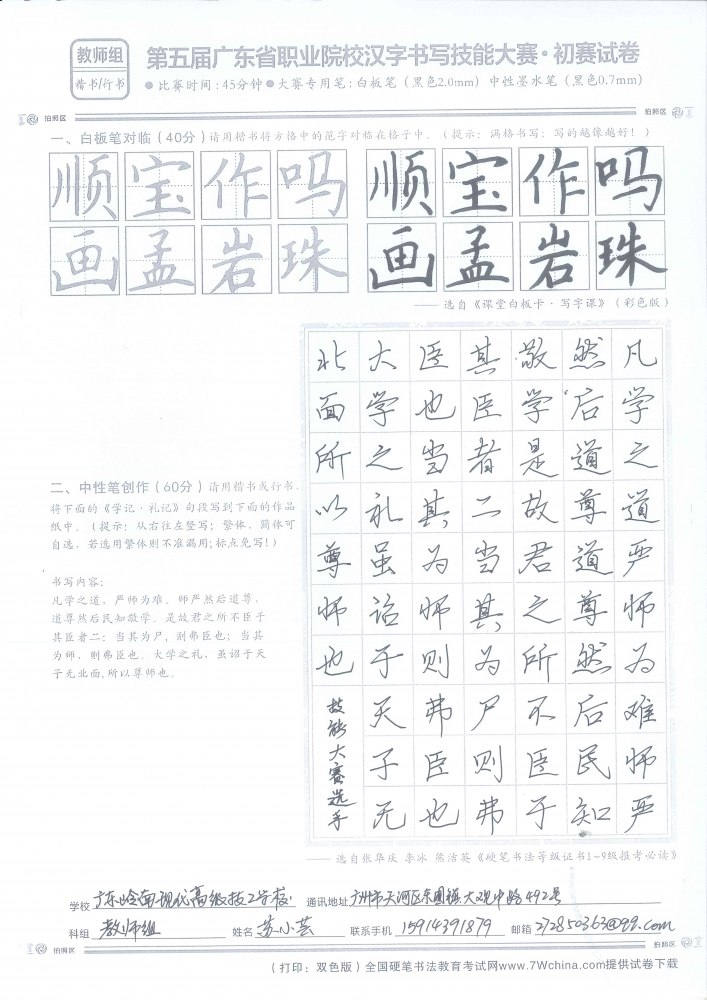 教师组
楷书/行书
第五届广东省职业院校汉字书写技能大赛·初赛试卷
●比赛时间:45分钟●大赛专用笔:白板笔(黑色2.0mm) 中性墨水笔(黑色0.7mm)
拍照区
拍照区
一、白板笔对临(40分)请用楷书将方格中的范字对临在格子中。(提示:满格书写;写的越像越好!)
顺宝作吗 顺宝作吗
画孟岩珠 画孟岩珠
——选自《课堂白板卡·写字课》(彩色版)
二、中性笔创作(60分)请用楷书或行书,
将下面的《学记·礼记》句段写到下面的作品
纸中。(提示:从右往左竖写;繁体、简体可
自选,若选用繁体则不准漏用;标点免写!)
书写内容:
凡学之道,严师为难。师严然后道尊,
道尊然后民知敬学。是故君之所不臣于
其臣者二:当其为尸,则弗臣也;当其
为师,则弗臣也。大学之礼,虽诏于天
子无北面,所以尊师也。
凡学之道严师为难师严
然后道尊道尊然后民知
敬学是故君之所不臣于
其臣者二当其为尸则弗
臣也当其为师则弗臣也
大学之礼虽诏于天子无
北面所以尊师也
技能大赛选手
——选自张华庆 李冰 熊洁英《硬笔书法等级证书1~9级报考必读》
学校 广东岭南现代高级技工学校 通讯地址 广州市天河区东圃镇大观中路492号
科组 教师组 姓名 苏小芸 联系手机 15914391879 邮箱 272850363@qq.com
拍照区
拍照区
(打印:双色版)全国硬笔书法教育考试网www.7Wchina.com提供试卷下载